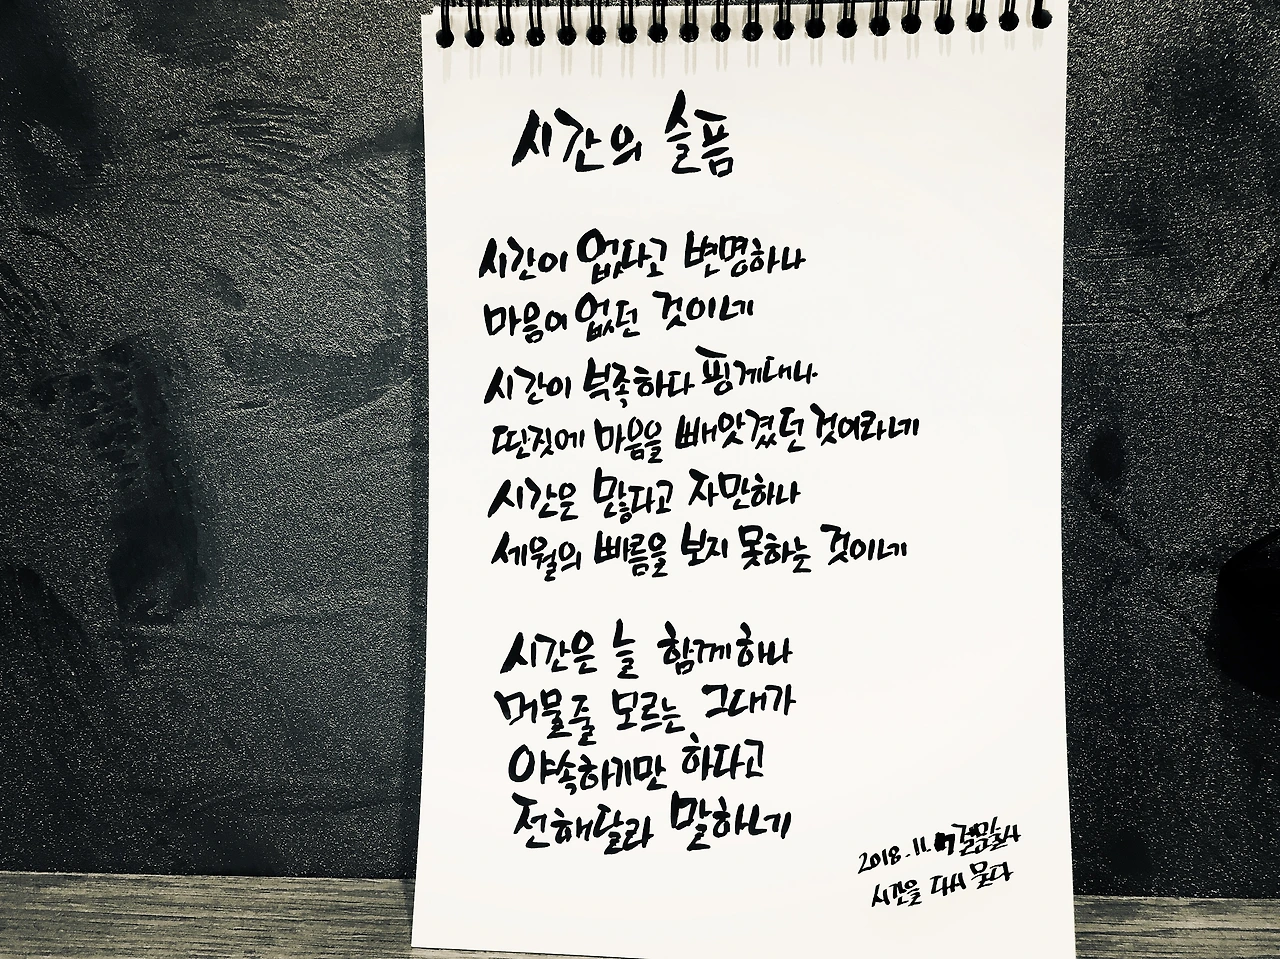 시간의 슬픔
시간이 없다고 변명하나
마음이 없던 것이네
시간이 부족하다 핑계대나
딴짓에 마음을 빼앗겼던 것이라네
시간은 많다고 자만하나
세월의 빠름을 보지 못하는 것이네
시간은 늘 함께하나
머물줄 모르는 그대가
야속하기만 하다고
전해달라 말하네
2018.11.
시간을 다시 묻다